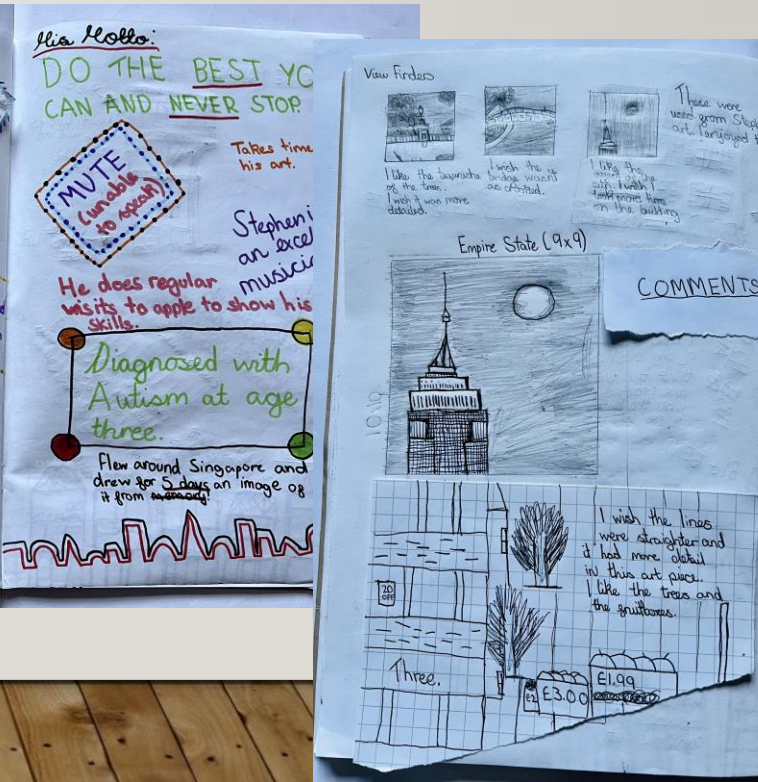 His Motto:
DO THE BEST YO
CAN AND NEVER STOP.
MUTE
(unable
to speak)
Takes time
his art.
Stephen i
an excel
musicia
He does regular
visits to apple to show his
skills.
Diagnosed with
Autism at age
three.
Flew around Singapore and
drew for 5 days an image of
it from memory!
View Finders
I like the techniche
of the trees.
I wish it was more
detailed.
I wish the
bridge wasn't
as crooked.
I like the
of the
I wish I
took more time
on the building.
These were
used from Steph
art. I enjoyed t
Empire State (9x9)
COMMENTS
10x9
I wish the lines
were straighter and
it had more detail
in this art piece.
I like the trees and
the fruitboxes.
20
OFF
Three.
£2
£3.00
£1.99